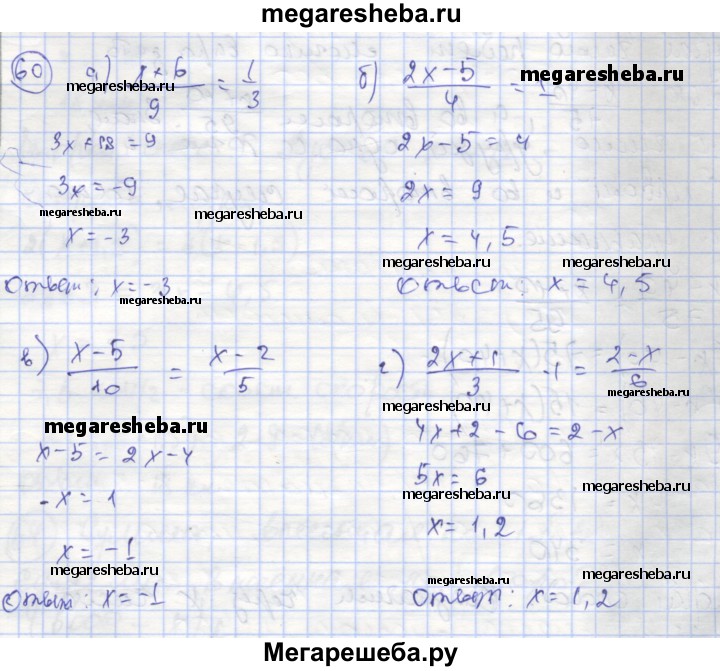 megaresheba.ru
60 а) x+6/9 = 1/3
megaresheba.ru
3x+18=9
3x=-9
megaresheba.ru
x=-3
Ответ: x=-3
megaresheba.ru
б) 2x-5/4 = 1
megaresheba.ru
2x-5=4
2x=9
megaresheba.ru
x=4,5
megaresheba.ru
megaresheba.ru
Ответ: x=4,5
в) x-5/10 = x-2/5
megaresheba.ru
x-5=2x-4
-x=1
x=-1
megaresheba.ru
Ответ: x=-1
г) 2x+1/3 -1 = 2-x/6
megaresheba.ru
megaresheba.ru
4x+2-6=2-x
5x=6
megaresheba.ru
megaresheba.ru
x=1,2
megaresheba.ru
megaresheba.ru
Ответ: x=1,2
Мегарешеба.ру